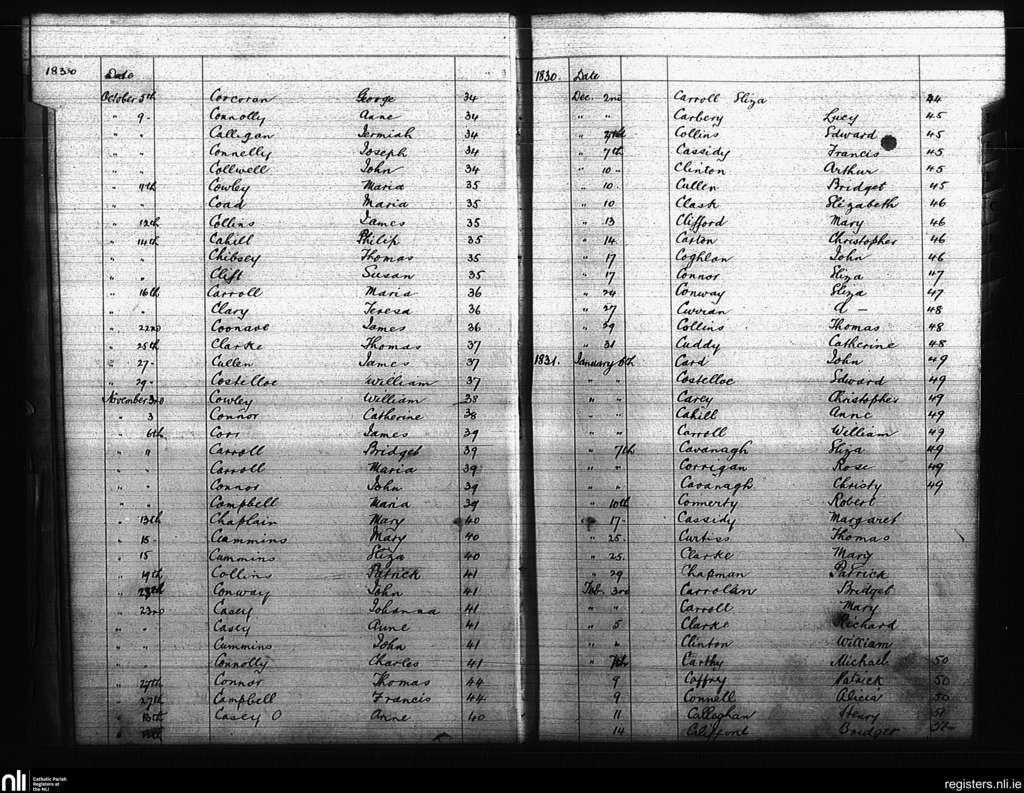 1830 Date
October 5th Corcoran George 34
" 9 - Connolly Anne 34
" " Calligan Jermiah 34
" " Connelly Joseph 34
" " Collwell John 34
" 11th Cowley Maria 35
" " Coad Maria 35
" 12th Collins James 35
" 14th Cahill Philip 35
" " Chibsey Thomas 35
" " Clift Susan 35
" 16th Carroll Maria 36
" " Clary Teresa 36
" 22nd Coonare James 36
" 25th Clarke Thomas 37
" 27 - Cullen James 37
" 29 - Costelloe William 37
November 3rd Cowley William 38
" 3 Connor Catherine 38
" 6th Corr James 39
" " Carroll Bridget 39
" " Carroll Maria 39
" " Connor John 39
" " Campbell Maria 39
" 13th Chaplain Mary 40
" 15 - Cummins Mary 40
" 15 Cummins Eliza 40
" 19th Collins Patrick 41
" Conway John 41
" 23rd Casey Johanna 41
" " Casey Anne 41
" " Cummins John 41
" " Connolly Charles 41
" 27th Connor Thomas 44
" 27th Campbell Francis 44
" 13th Casey O Anne 40
1830. Date
Dec. 2nd Carroll Eliza 44
" " Carbery Lucy 45
" Collins Edward 45
" 7th Cassidy Francis 45
" 10 " Clinton Arthur 45
" 10 - Cullen Bridget 45
" 10 Clask Elizabeth 46
" 13 Clifford Mary 46
" 14 - Carton Christopher 46
" 17 Coghlan John 46
" 17 Connor Eliza 47
" 24 Conway Eliza 47
" 27 Curran A - 48
" 29 Collins Thomas 48
" 31 Cuddy Catherine 48
1831. January 6th Card John 49
" " Costelloe Edward 49
" " Carey Christopher 49
" " Cahill Anne 49
" " Carroll William 49
" 7th Cavanagh Eliza 49
" " Corrigan Rose 49
" " Cavanagh Christy 49
" 10th Connerty Robert
" 17 - Cassidy Margaret
" 25 - Curtiss Thomas
" 25 - Clarke Mary
" 29 Chapman Patrick
Feb. 3rd Carrolan Bridget
" " Carroll Mary
" 5 Clarke Richard
" " Clinton William
" 7th Carthy Michael 50
" 9 Caffrey Patrick 50
" 9 Connell Alicia 50
" 11 Calleghan Henry
14 Clifford Bridget
nli Catholic Parish Registers at the NLI
registers.nli.ie